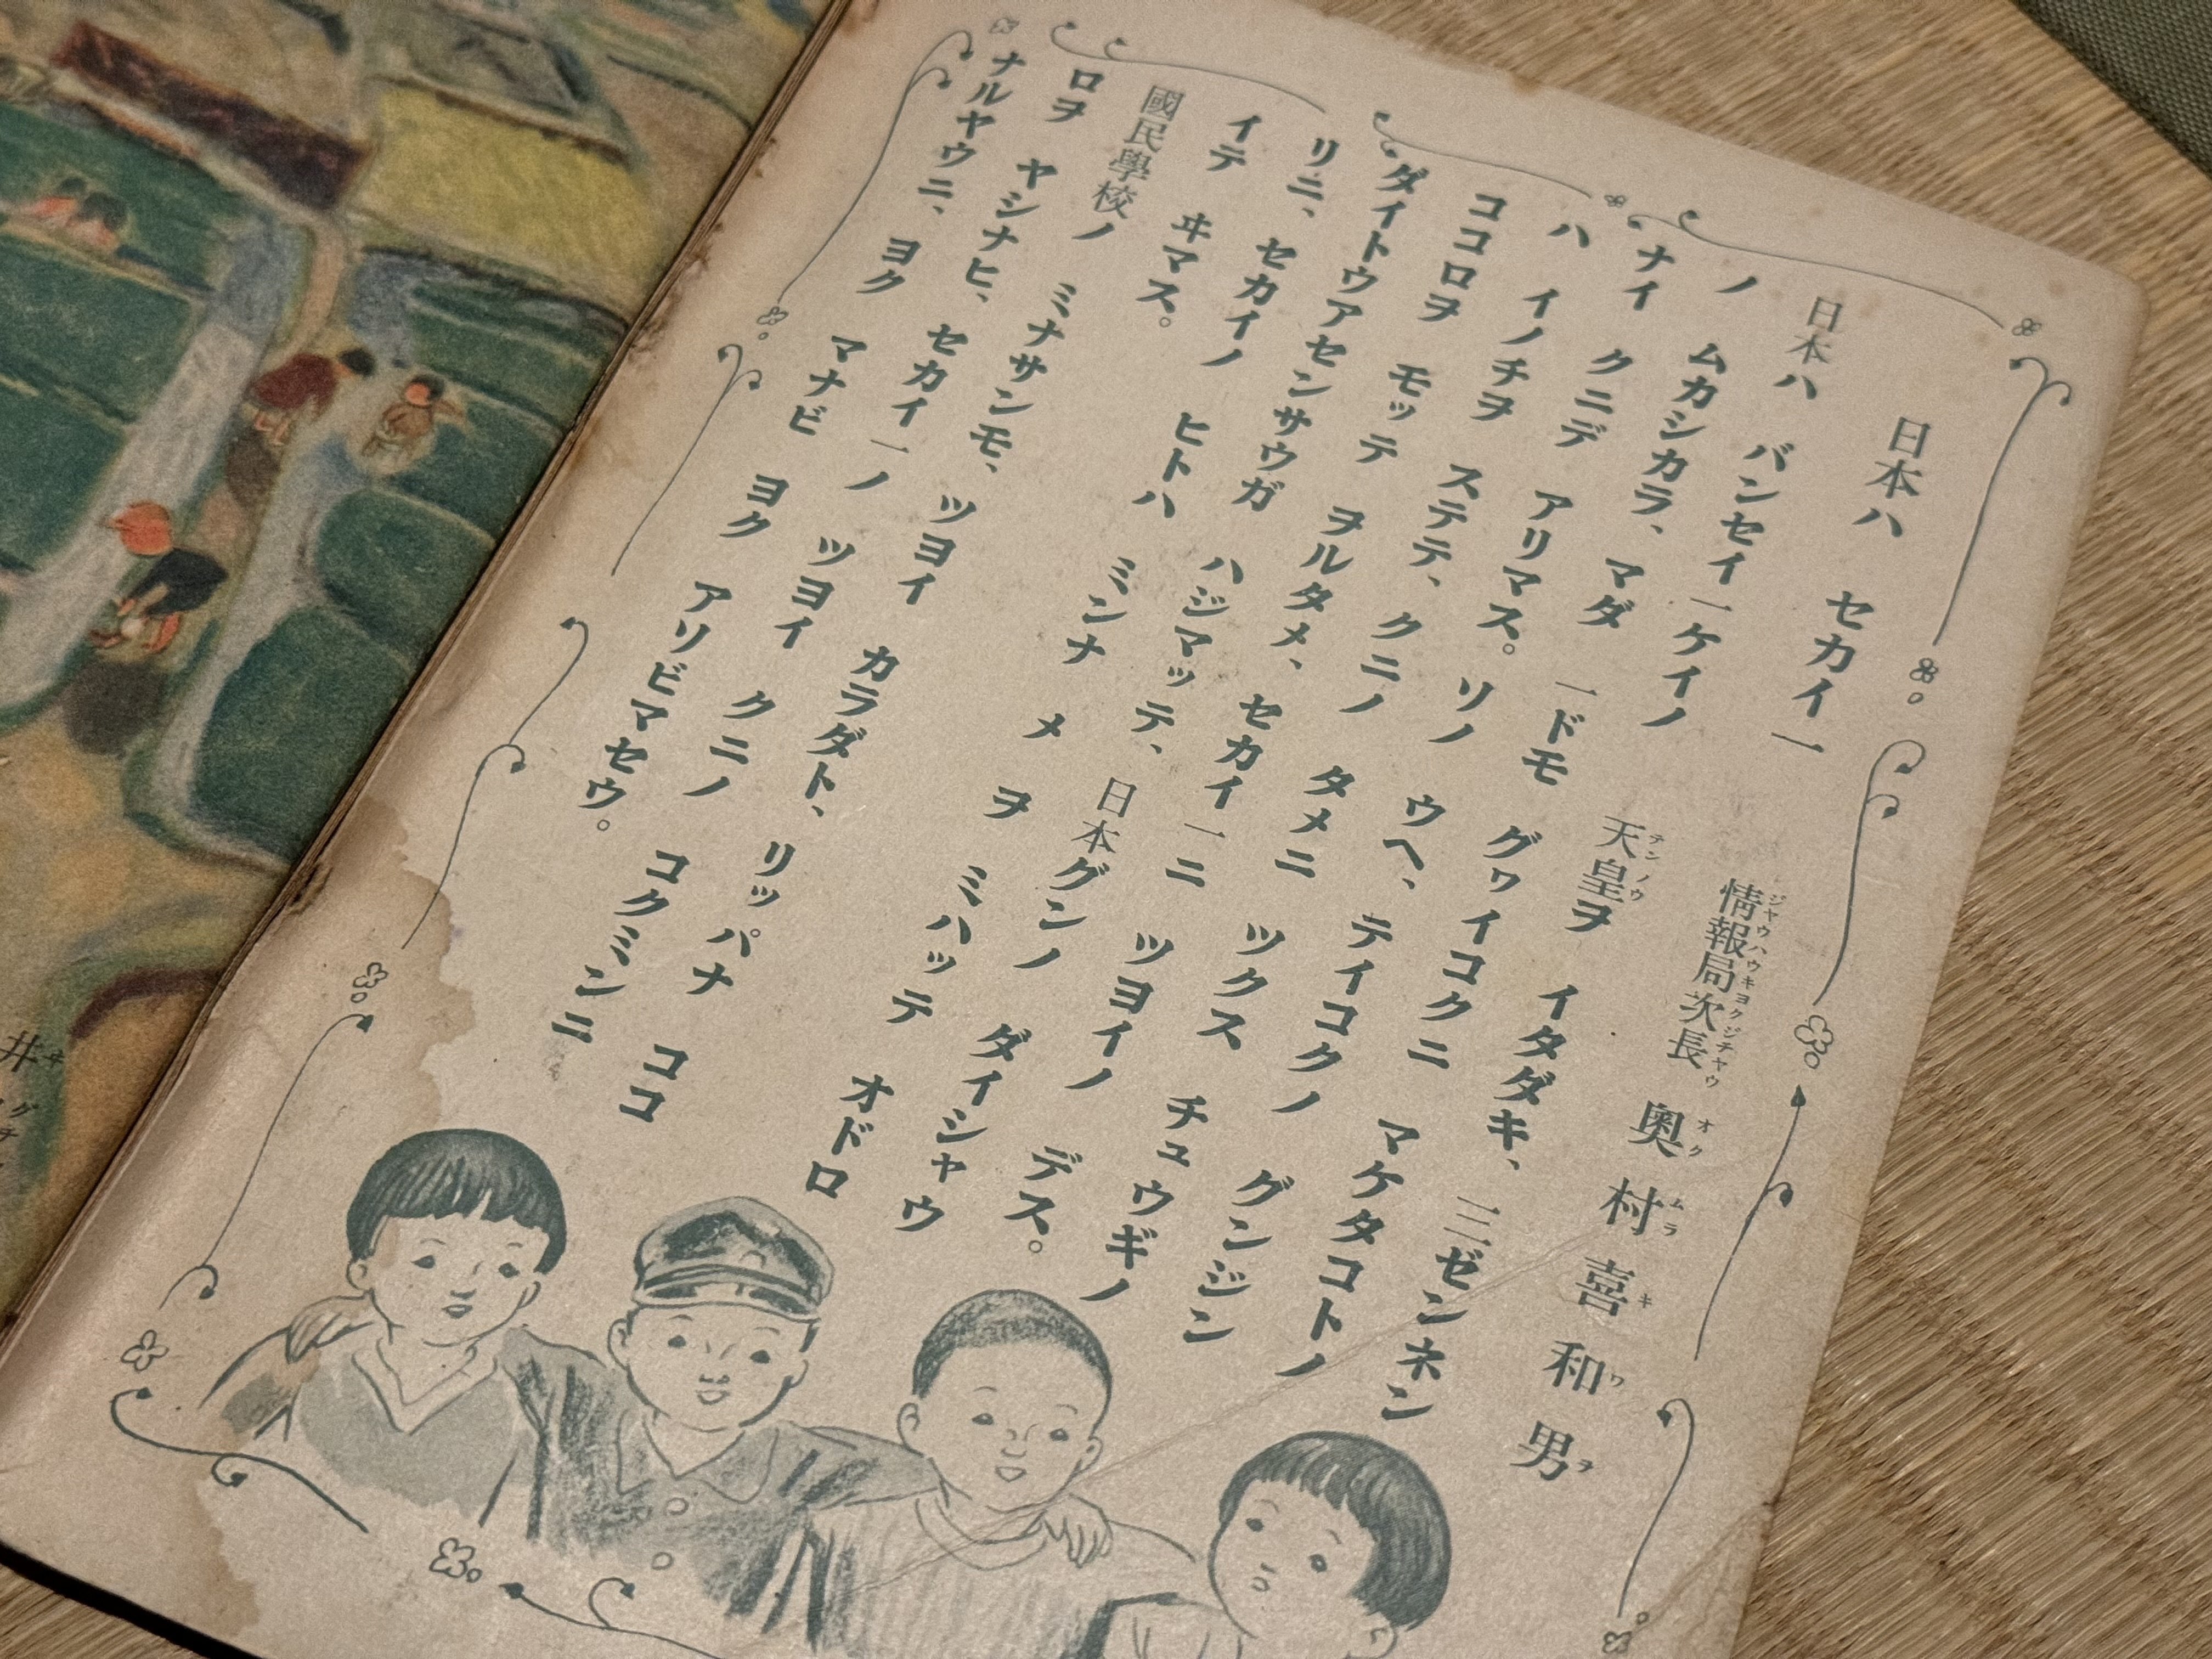 日本ハ セカイ一
情報局次長 奥村喜和男
ジヤウハウキヨクジチヤウ オクムラキワヲ
日本ハ バンセイ一ケイノ 天皇ヲ イタダキ、 三ゼンネン
テンノウ
ノ ムカシカラ、 マダ 一ドモ グヮイコクニ マケタコトノ
ナイ クニデ アリマス。 ソノ ウヘ、 テイコクノ グンジン
ハ イノチヲ ステテ、 クニノ タメニ ツクス チュウギノ
ココロヲ モッテ ヲルタメ、 セカイ一ニ ツヨイノ デス。
ダイトウアセンサウガ ハジマッテ、 日本グンノ ダイシャウ
リニ、 セカイノ ヒトハ ミンナ メ ヲ ミハッテ オドロ
イテ ヰマス。
國民學校ノ ミナサンモ、 ツヨイ カラダト、 リッパナ ココ
ロヲ ヤシナヒ、 セカイ一ノ ツヨイ クニノ コクミンニ
ナルヤウニ、 ヨク マナビ ヨク アソビマセウ。
井